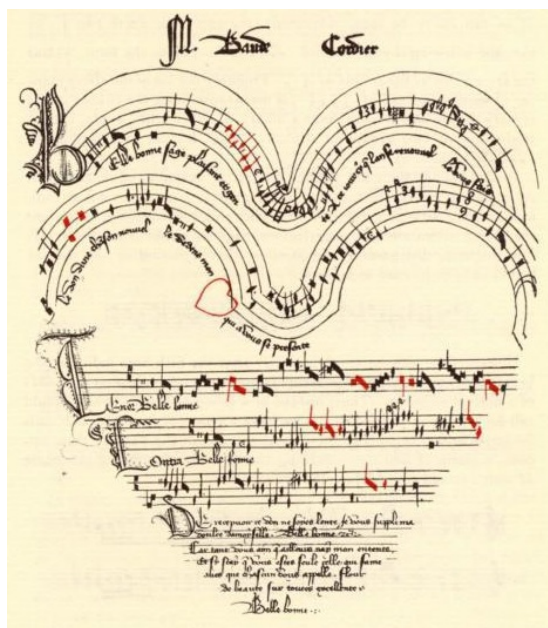 M. Baude Cordier
Belle bonne sage plaisant et gen
ce jour q̄ l'an se renouvel
le don dune chāson nouvel
le dedens mon
qui a vous se presente
Tenor Belle bonne
Contra Belle bonne
De recepvoir ce don ne soyes lente je vous suppli ma
doulce damoyselle. Belle bonne
Car tant vous aim q'aillours nay mon entente
Et si scay q̄ vous estes seule celle qui fame
aves que chascun vous appelle. Flour
de beaute sur toutes excellente
Belle bonne.